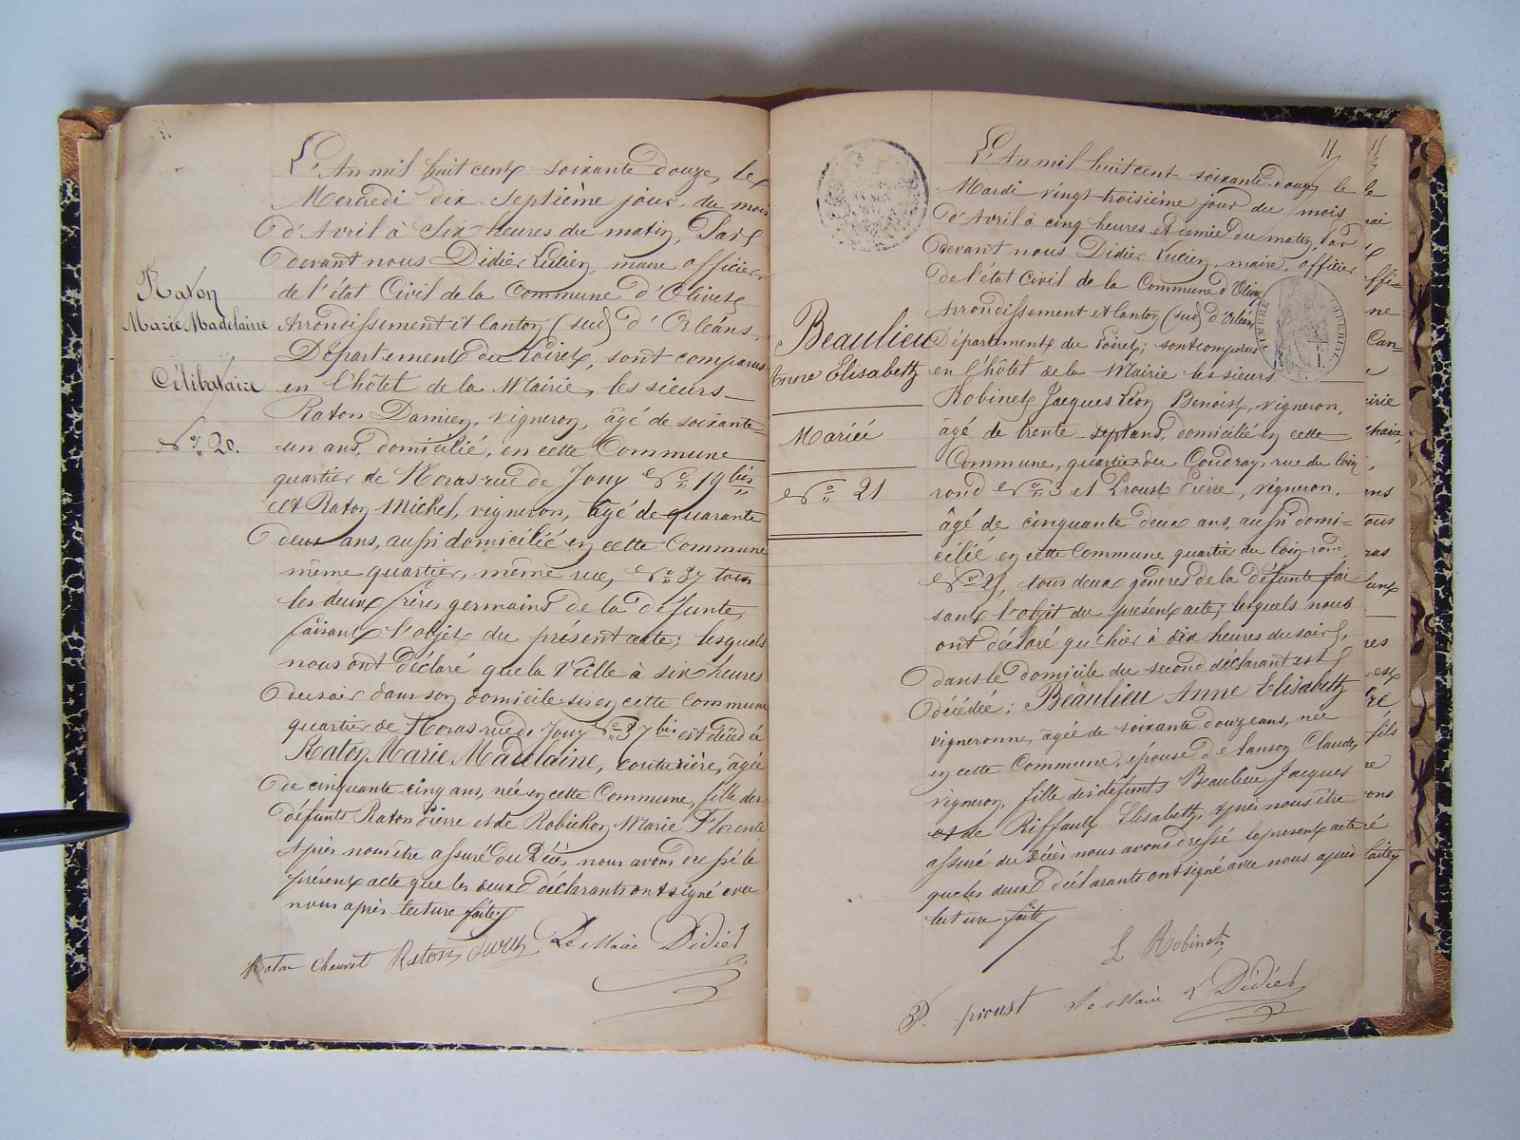 Raton
Marie Madelaine
Célibataire
No 20.
L'An mil huit cent soixante douze, le
Mercredi dix Septième jour du mois
d'Avril à Six heures du matin, Par
devant nous Didier Lucien, maire officier
de l'état Civil de la Commune d'Olivet
Arrondissement et Canton (sud) d'Orléans,
Département du Loiret, sont comparus
en l'hôtel de la Mairie, les sieurs
Raton Damien, vigneron, âgé de soixante
un ans, domicilié, en cette Commune
quartier de Noras rue de Jouy No 19 bis
et Raton Michel, vigneron, âgé de quarante
deux ans, aussi domicilié en cette Commune
même quartier, même rue, No 37 tous
les deux frères germains de la défunte
faisant l'objet du présent acte; lesquels
nous ont déclaré que la Veille à six heures
du soir dans son domicile sis en cette Commune
quartier de Noras rue de Jouy No 37 bis est décédée
Raton Marie Madelaine, couturière, âgée
de cinquante cinq ans, née en cette Commune, fille des
défunts Raton Pierre et de Robichon Marie Florence
Après nous être assuré du Décès nous avons dressé le
présent acte que les deux déclarants ont signé avec
nous après lecture faite
Raton Raton Le Maire Didier
11
Beaulieu
Anne Elisabeth
Mariée
No 21
L'An mil huit cent soixante douze le
Mardi vingt troisième jour du mois
d'Avril à cinq heures et demie du matin, Par
devant nous Didier Lucien, maire, officier
de l'état Civil de la Commune d'Olivet
Arrondissement et Canton (sud) d'Orléans
Département du Loiret; sont comparus
en l'hôtel de la Mairie les sieurs
Robinet Jacques Léon Benoist, vigneron,
agé de trente sept ans, domicilié en cette
Commune, quartier du Coudray, rue du Coin
rond No 3 et Proust Pierre, vigneron,
âgé de cinquante deux ans, aussi domi=
cilié en cette Commune quartier du Coin rond,
No 21, tous deux gendres de la défunte fai
sant l'objet du présent acte; lesquels nous
ont déclaré qu'hier à dix heures du soir,
dans le domicile du second déclarant est
décédée; Beaulieu Anne Elisabeth
vigneronne, âgée de soixante douze ans, née
en cette Commune, épouse de Sanson Claude,
vigneron, fille des défunts Beaulieu Jacques
et de Riffault Elisabeth, après nous être
assuré du décès nous avons dressé le présent acte
que les deux déclarants ont signé avec nous après
lecture faite
L Robinet
P. proust Le Maire L Didier